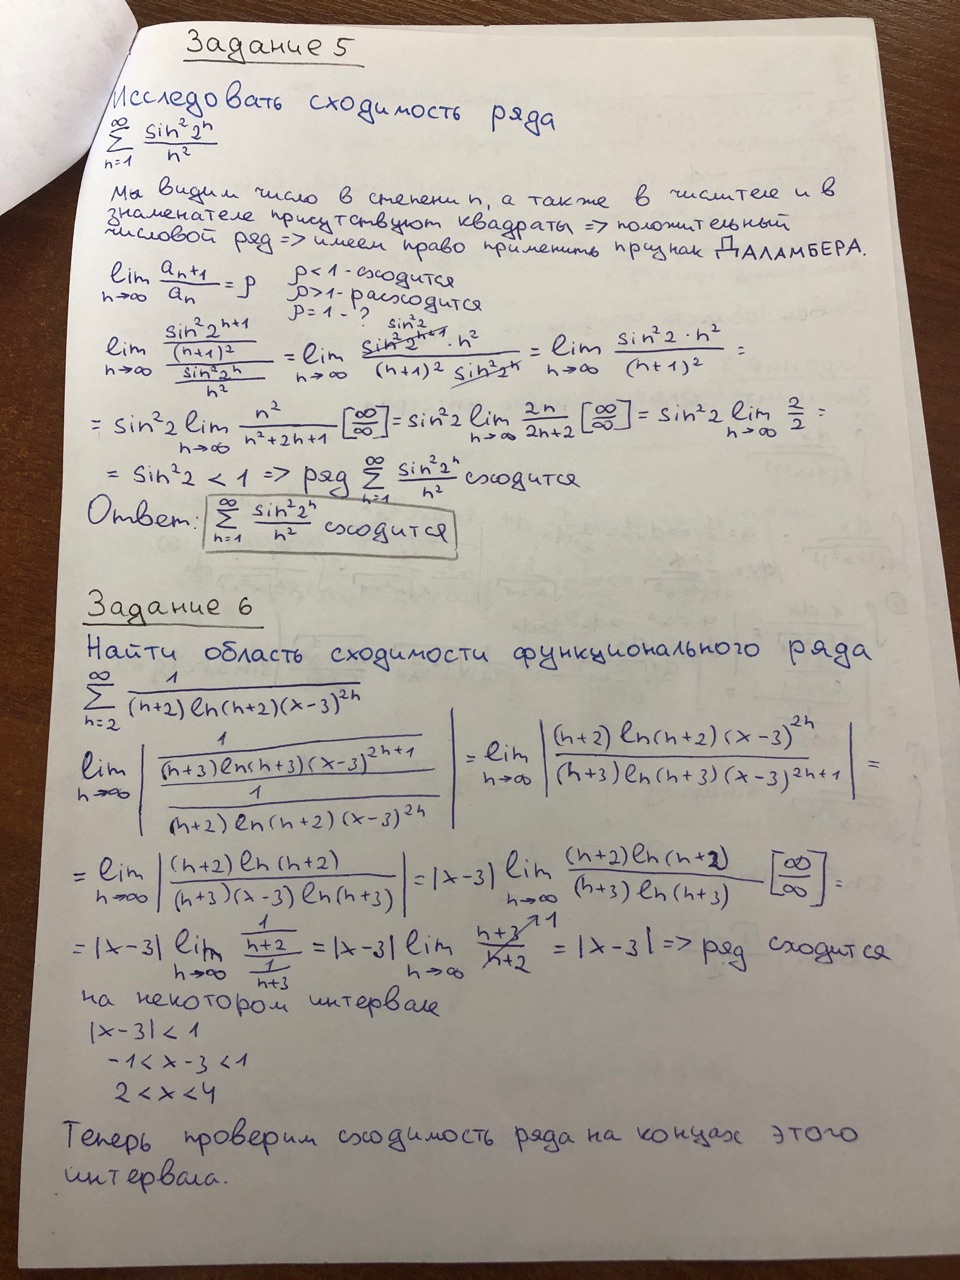 Задание 5
Исследовать сходимость ряда
∑_{n=1}^{∞} sin²2ⁿ / n²
Мы видим число в степени n, а также в числителе и в
знаменателе присутствуют квадраты => положительный
числовой ряд => имеем право применить признак ДАЛАМБЕРА.
lim_{n→∞} a_{n+1}/a_n = ρ ρ<1 - сходится
ρ>1 - расходится
ρ=1 - ?
lim_{n→∞} (sin²2ⁿ⁺¹/(n+1)²)/(sin²2ⁿ/n²) = lim_{n→∞} (sin²2 sin²2ⁿ⁺¹·n²)/((n+1)² sin²2ⁿ) = lim_{n→∞} (sin²2·n²)/(n+1)² =
= sin²2 lim_{n→∞} n²/(n²+2n+1) [∞/∞] = sin²2 lim_{n→∞} 2n/(2n+2) [∞/∞] = sin²2 lim_{n→∞} 2/2 =
= sin²2 < 1 => ряд ∑_{n=1}^{∞} sin²2ⁿ/n² сходится
Ответ: ∑_{n=1}^{∞} sin²2ⁿ/n² сходится
Задание 6
Найти область сходимости функционального ряда
∑_{n=2}^{∞} 1/((n+2) ln(n+2)(x-3)²ⁿ)
lim_{n→∞} |(1/((n+3)ln(n+3)(x-3)²ⁿ⁺¹))/(1/((n+2)ln(n+2)(x-3)²ⁿ))| = lim_{n→∞} |((n+2)ln(n+2)(x-3)²ⁿ)/((n+3)ln(n+3)(x-3)²ⁿ⁺¹)| =
= lim_{n→∞} |((n+2)ln(n+2))/((n+3)(x-3)ln(n+3))| = |x-3| lim_{n→∞} ((n+2)ln(n+2))/((n+3)ln(n+3)) [∞/∞] =
= |x-3| lim_{n→∞} (1/(n+2))/(1/(n+3)) = |x-3| lim_{n→∞} (n+3)/(n+2) → 1 = |x-3| => ряд сходится
на некотором интервале
|x-3| < 1
-1 < x-3 < 1
2 < x < 4
Теперь проверим сходимость ряда на концах этого
интервала.